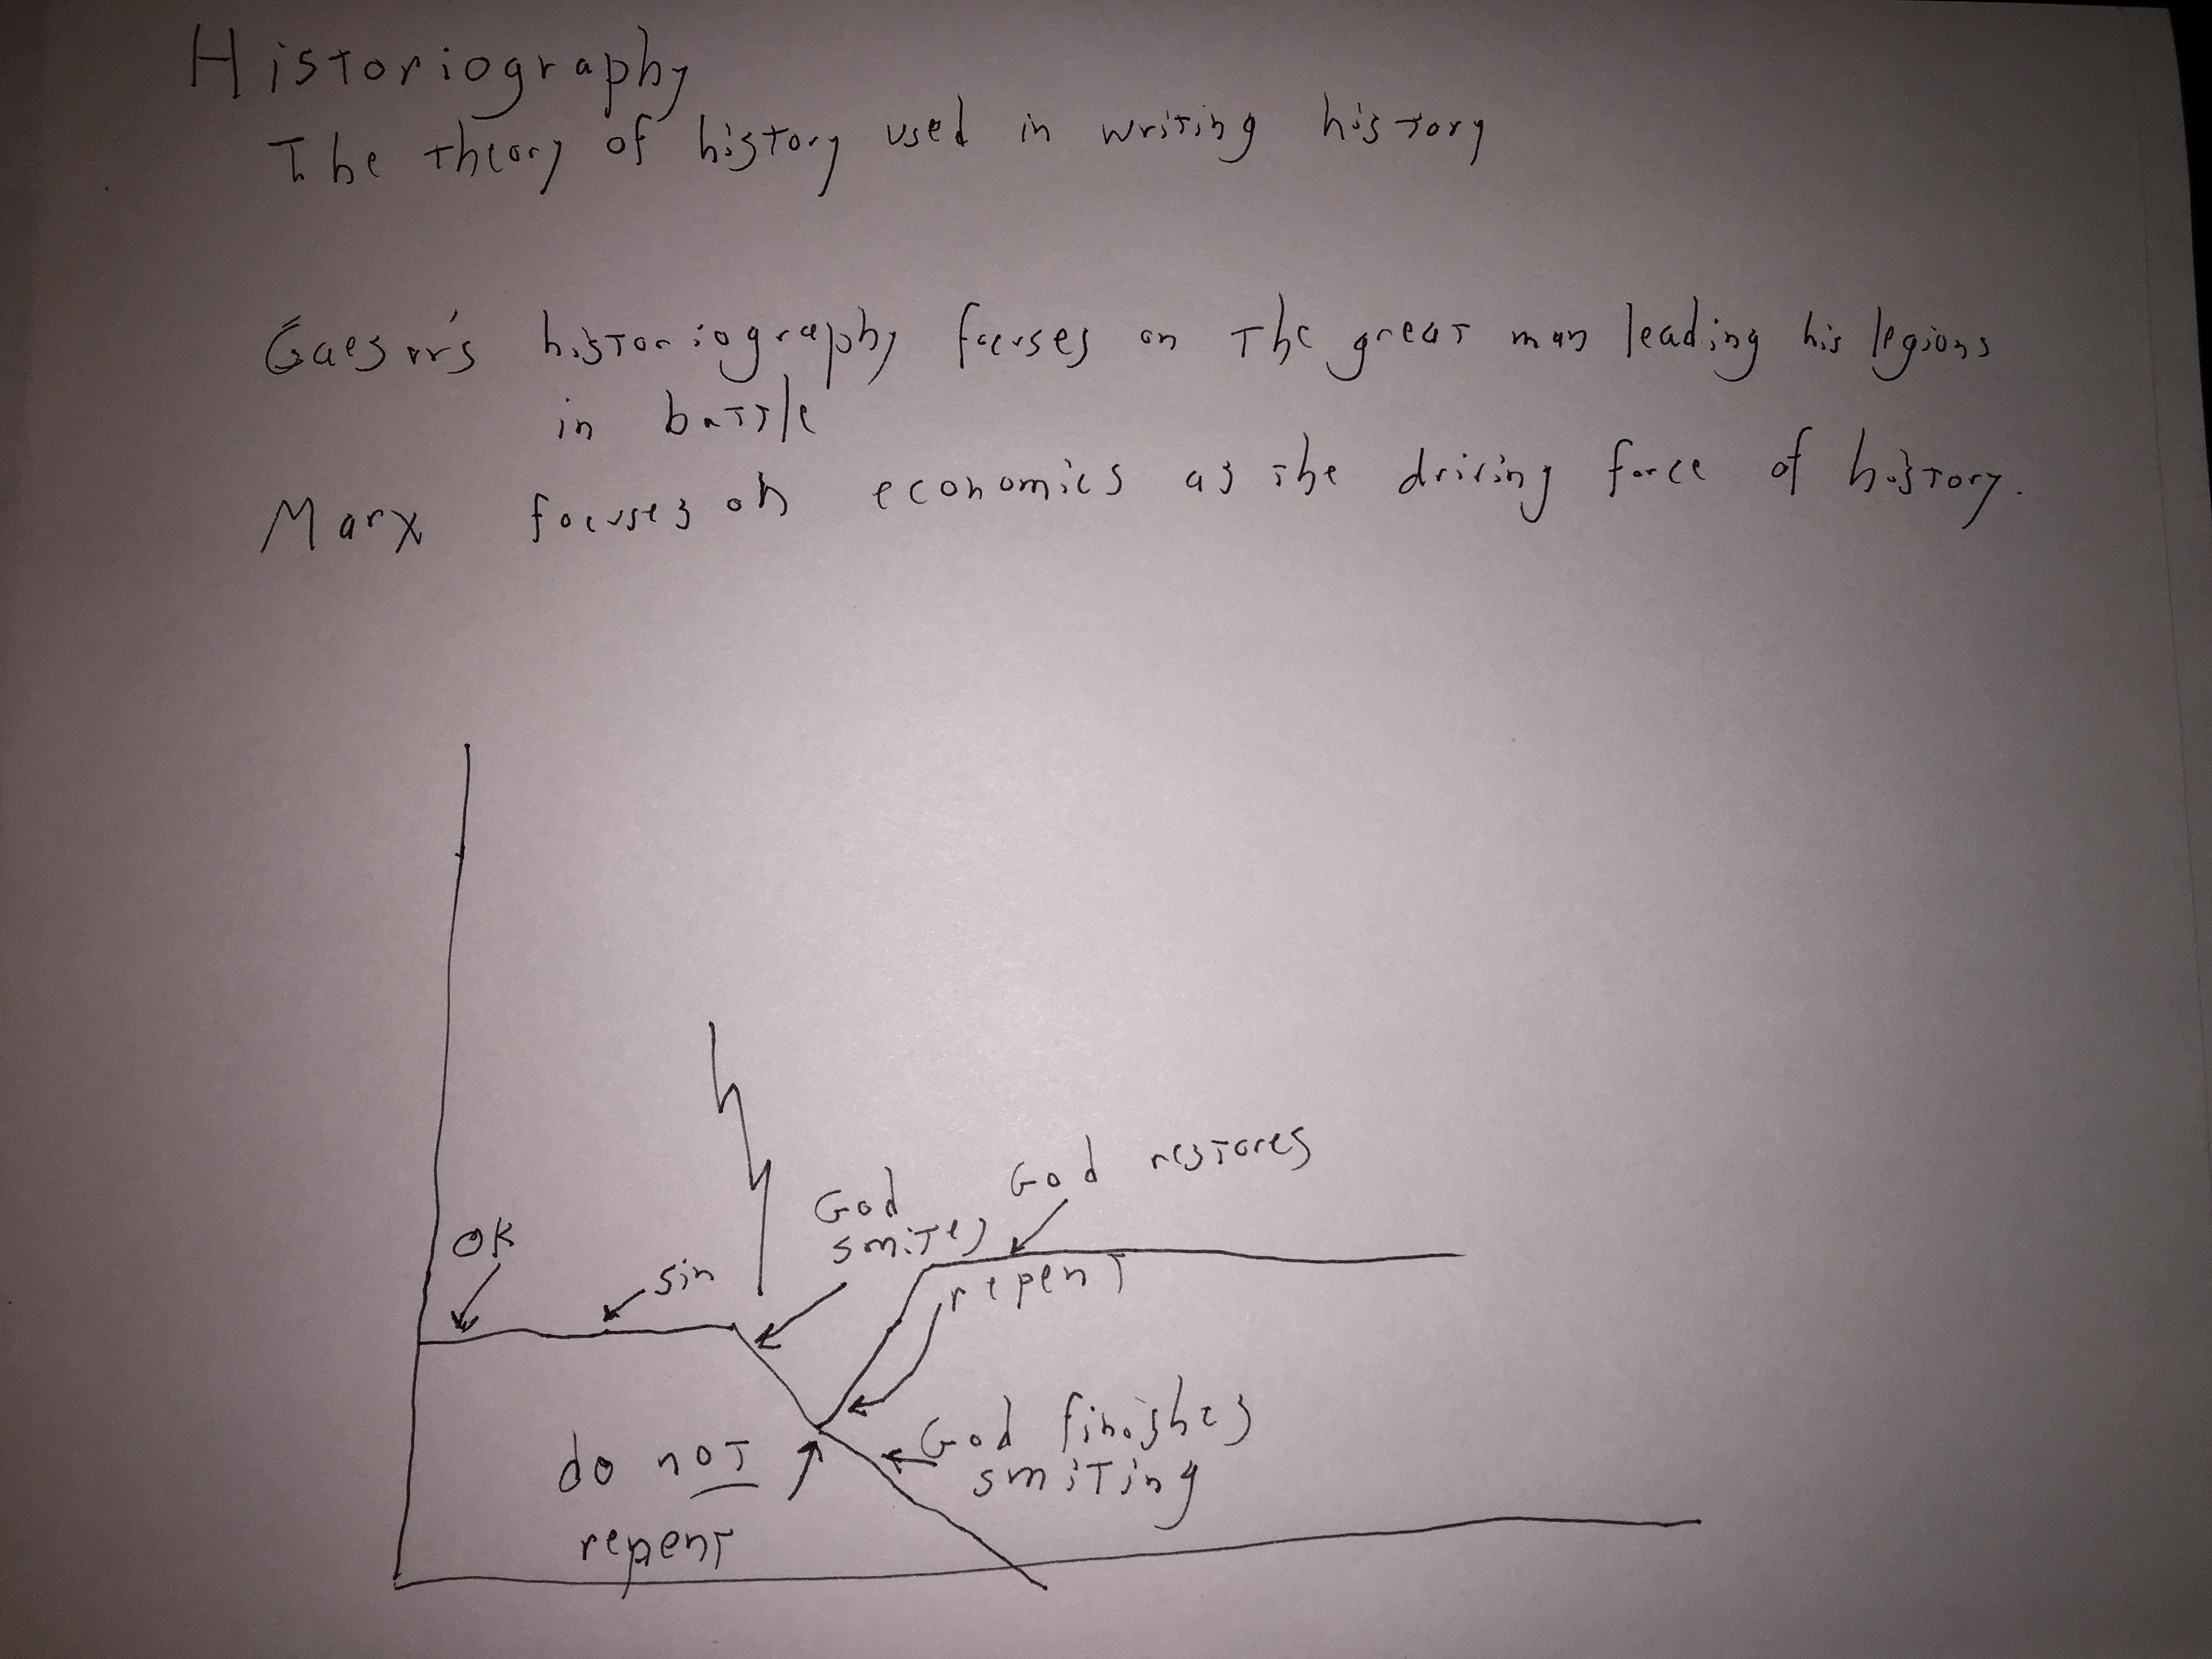 Historiography
The theory of history used in writing history
Caesar's historiography focuses on the great man leading his legions
in battle
Marx focuses on economics as the driving force of history.
God restores
God
smites
OK
sin
repent
God finishes
smiting
do not
repent